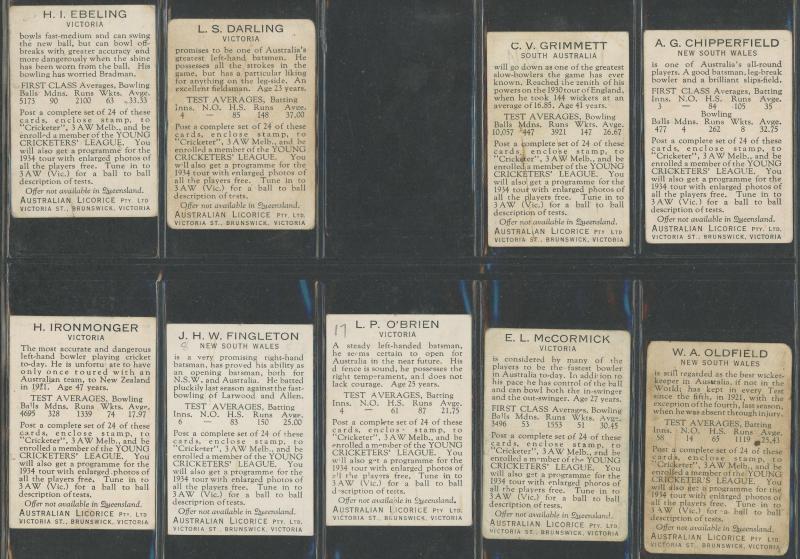 H. I. EBELING
VICTORIA
bowls fast-medium and can swing
the new ball, but can bowl off-
breaks with greater accuracy and
more dangerously when the shine
has been worn from the ball. His
bowling has worried Bradman.
FIRST CLASS Averages, Bowling
Balls Mdns. Runs Wkts. Avge.
5173 90 2100 63 33.33
Post a complete set of 24 of these
cards, enclose stamp, to
"Cricketer", 3 AW Melb., and be
enrolled a member of the YOUNG
CRICKETERS' LEAGUE. You
will also get a programme for the
1934 tour with enlarged photos of
all the players free. Tune in to
3 AW (Vic.) for a ball to ball
description of tests.
Offer not available in Queensland.
AUSTRALIAN LICORICE PTY. LTD
VICTORIA ST., BRUNSWICK, VICTORIA
L. S. DARLING
VICTORIA
promises to be one of Australia's
greatest left-hand batsmen. He
possesses all the strokes in the
game, but has a particular liking
for anything on the leg-side. An
excellent fieldsman. Age 23 years.
TEST AVERAGES, Batting
Inns. N.O. H.S. Runs Avge.
4 — 85 148 37.00
Post a complete set of 24 of these
cards, enclose stamp, to
"Cricketer", 3 AW Melb., and be
enrolled a member of the YOUNG
CRICKETERS' LEAGUE. You
will also get a programme for the
1934 tour with enlarged photos of
all the players free. Tune in to
3 AW (Vic.) for a ball to ball
description of tests.
Offer not available in Queensland.
AUSTRALIAN LICORICE PTY. LTD.
VICTORIA ST., BRUNSWICK, VICTORIA
C. V. GRIMMETT
SOUTH AUSTRALIA
will go down as one of the greatest
slow-bowlers the game has ever
known. Reached the zenith of his
powers on the 1930 tour of England,
when he took 144 wickets at an
average of 16.85. Age 41 years.
TEST AVERAGES, Bowling
Balls Mdns. Runs Wkts. Avge.
10,057 447 3921 147 26.67
Post a complete set of 24 of these
cards, enclose stamp, to
"Cricketer", 3 AW Melb., and be
enrolled a member of the YOUNG
CRICKETERS' LEAGUE. You
will also get a programme for the
1934 tour with enlarged photos of
all the players free. Tune in to
3 AW (Vic.) for a ball to ball
description of tests.
Offer not available in Queensland.
AUSTRALIAN LICORICE PTY. LTD.
VICTORIA ST., BRUNSWICK, VICTORIA
A. G. CHIPPERFIELD
NEW SOUTH WALES
is one of Australia's all-round
players. A good batsman, leg-break
bowler and a brilliant slips-field.
FIRST CLASS AVERAGES, Batting
Inns. N.O. H.S. Runs Avge.
3 — 84 105 35
Bowling
Balls Mdns. Runs Wkts. Avge.
477 4 262 8 32.75
Post a complete set of 24 of these
cards, enclose stamp, to
"Cricketer", 3 AW Melb., and be
enrolled a member of the YOUNG
CRICKETERS' LEAGUE. You
will also get a programme for the
1934 tour with enlarged photos of
all the players free. Tune in to
3 AW (Vic.) for a ball to ball
description of tests.
Offer not available in Queensland.
AUSTRALIAN LICORICE PTY. LTD
VICTORIA ST., BRUNSWICK, VICTORIA
H. IRONMONGER
VICTORIA
The most accurate and dangerous
left-hand bowler playing cricket
to-day. He is unfortunate to have
only once toured with an
Australian team, to New Zealand
in 1921. Age 47 years.
TEST AVERAGE, Bowling
Balls Mdns. Runs Wkts. Avge.
4695 328 1339 74 17.97
Post a complete set of 24 of these
cards, enclose stamp, to
"Cricketer", 3 AW Melb., and be
enrolled a member of the YOUNG
CRICKETERS' LEAGUE. You
will also get a programme for the
1934 tour with enlarged photos of
all the players free. Tune in to
3 AW (Vic.) for a ball to ball
description of tests.
Offer not available in Queensland.
AUSTRALIAN LICORICE PTY. LTD.
VICTORIA ST., BRUNSWICK, VICTORIA
J. H. W. FINGLETON
NEW SOUTH WALES
is a very promising right-hand
batsman, has proved his ability as
an opening batsman, both for
N.S.W. and Australia. He batted
pluckily last season against the fast-
bowling of Larwood and Allen.
TEST AVERAGES, Batting
Inns. N.O. H.S. Runs Avge.
6 — 83 150 25.00
Post a complete set of 24 of these
cards, enclose stamp, to
"Cricketer", 3 AW Melb., and be
enrolled a member of the YOUNG
CRICKETERS' LEAGUE. You
will also get a programme for the
1934 tour with enlarged photos of
all the players free. Tune in to
3 AW (Vic.) for a ball to ball
description of tests.
Offer not available in Queensland.
AUSTRALIAN LICORICE PTY. LTD.
VICTORIA ST., BRUNSWICK, VICTORIA
17
L. P. O'BRIEN
VICTORIA
A steady left-handed batsman,
he seems certain to open for
Australia in the near future. His
defence is sound, he possesses the
right temprament, and does not
lack courage. Age 25 years.
TEST AVERAGES, Batting
Inns. N.O. H.S. Runs Avge.
4 — 61 87 21.75
Post a complete set of 24 of these
cards, enclose stamp, to
"Cricketer", 3 AW Melb., and be
enrolled a member of the YOUNG
CRICKETERS' LEAGUE. You
will also get a programme for the
1934 tour with enlarged photos of
all the players free. Tune in to
3 AW (Vic.) for a ball to ball
description of tests.
Offer not available in Queensland.
AUSTRALIAN LICORICE PTY. LTD.
VICTORIA ST., BRUNSWICK, VICTORIA
E. L. McCORMICK
VICTORIA
is considered by many of the
players to be the fastest bowler
in Australia to-day. In addition to
his pace he has control of the ball
and can bowl both the in-swinger
and the out-swinger. Age 27 years.
FIRST CLASS Averages, Bowling
Balls Mdns. Runs Wkts. Avge.
3496 53 1553 51 30.45
Post a complete set of 24 of these
cards, enclose stamp, to
"Cricketer", 3 AW Melb., and be
enrolled a member of the YOUNG
CRICKETERS' LEAGUE. You
will also get a programme for the
1934 tour with enlarged photos of
all the players free. Tune in to
3 AW (Vic.) for a ball to ball
description of tests.
Offer not available in Queensland.
AUSTRALIAN LICORICE PTY. LTD.
VICTORIA ST., BRUNSWICK, VICTORIA
W. A. OLDFIELD
NEW SOUTH WALES
is still regarded as the best wicket-
keeper in Australia, if not in the
World; has kept in every Test
since the fifth, in 1921, with the
exception of the fourth, last season,
when he was absent through injury.
TEST AVERAGES, Batting
Inns. N.O. H.S. Runs Avge.
58 14 65 1119 25.43
Post a complete set of 24 of these
cards, enclose stamp, to
"Cricketer", 3 AW Melb., and be
enrolled a member of the YOUNG
CRICKETERS' LEAGUE. You
will also get a programme for the
1934 tour with enlarged photos of
all the players free. Tune in to
3 AW (Vic.) for a ball to ball
description of tests.
Offer not available in Queensland.
AUSTRALIAN LICORICE PTY. LTD
VICTORIA ST., BRUNSWICK, VICTORIA